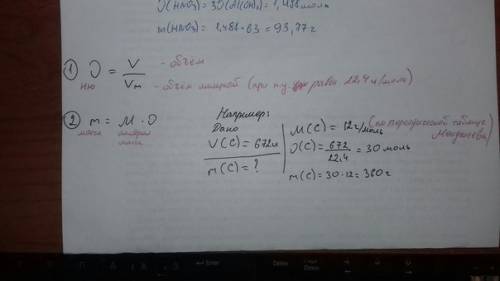 ν(HNO₃) = 3ν(Al(OH)₃) = 1,488 моль
m(HNO₃) = 1,488 · 63 = 93,77 г
① ν = V / Vm
ню
- объём
- объём молярный (при н.у. равен 22,4 л/моль)
② m = M · ν
масса молярная масса
Например:
Дано
V(C) = 672 л
m(C) = ?
M(C) = 12 г/моль (по периодической таблице Менделеева)
ν(C) = 672 / 22,4 = 30 моль
m(C) = 30 · 12 = 360 г
Enter
Delete
End